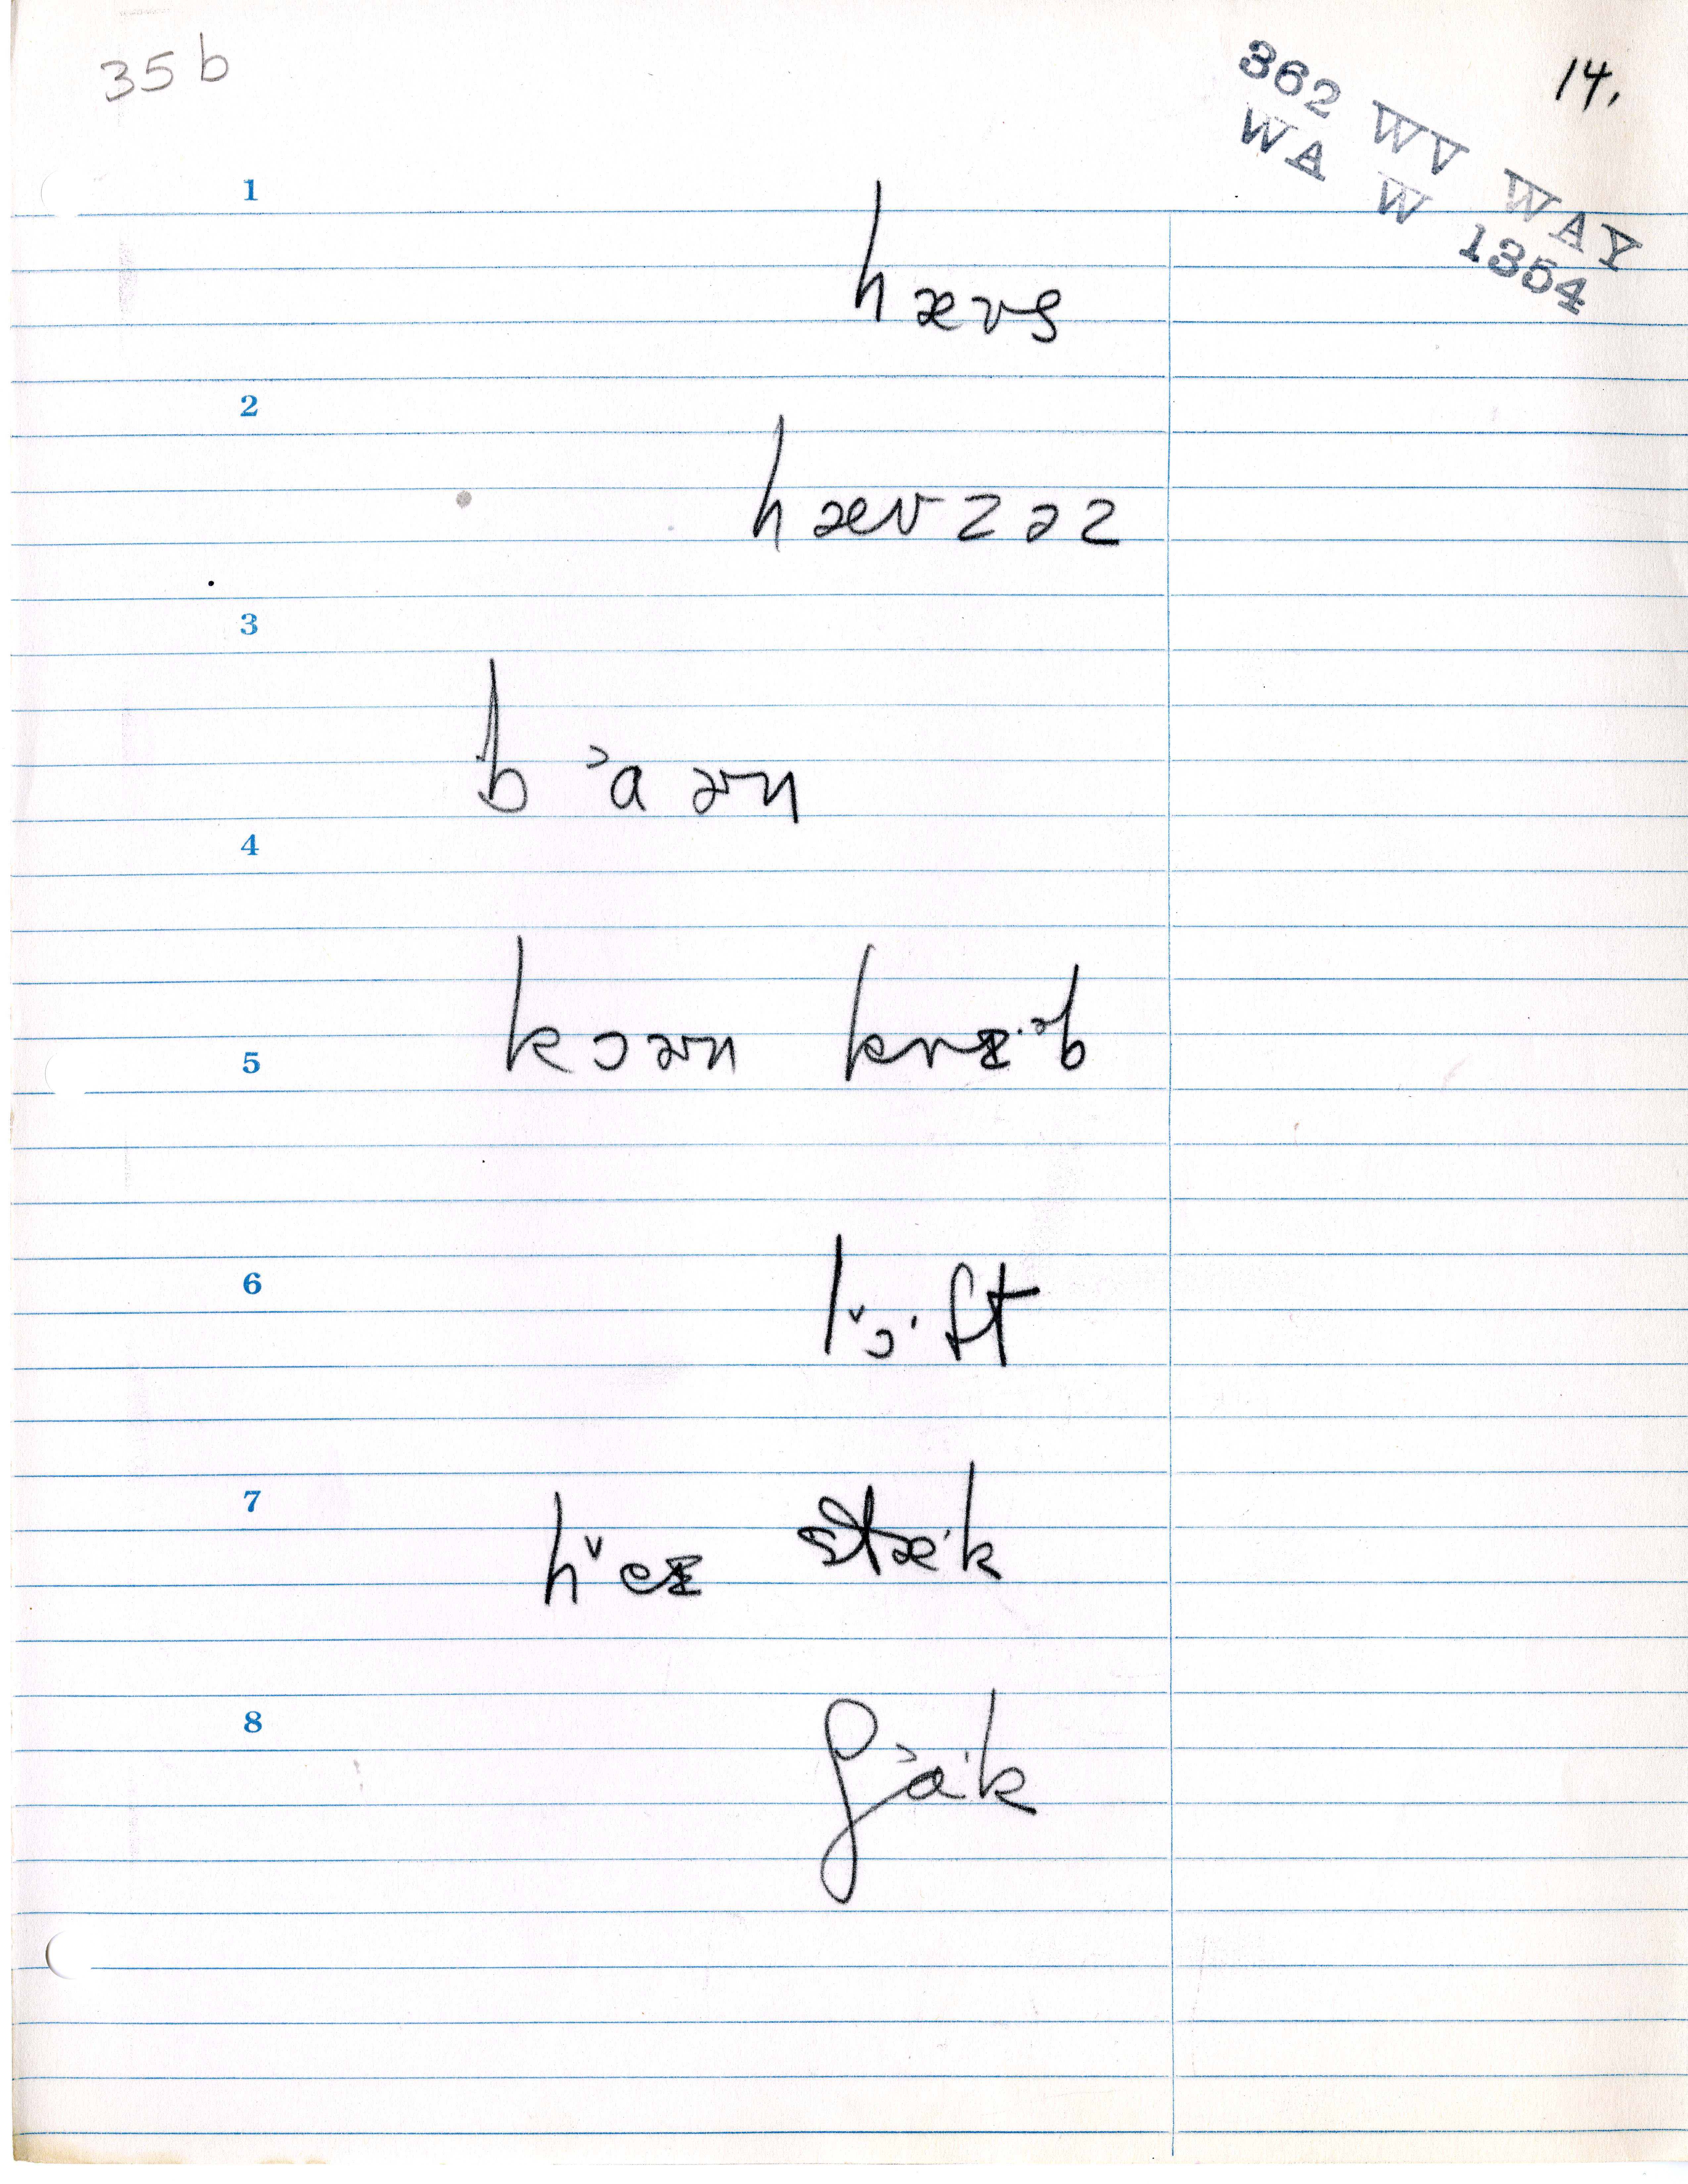 35b
14.
362 WV WAY
WA W 1354
1
hævs
2
hævzəz
3
b˃aɚn
4
5
kɔɚn krɪ·ᵊb
6
l˅ɔ·ft
7
h˅eɪ stæ·k
8
ʃ˃a·k